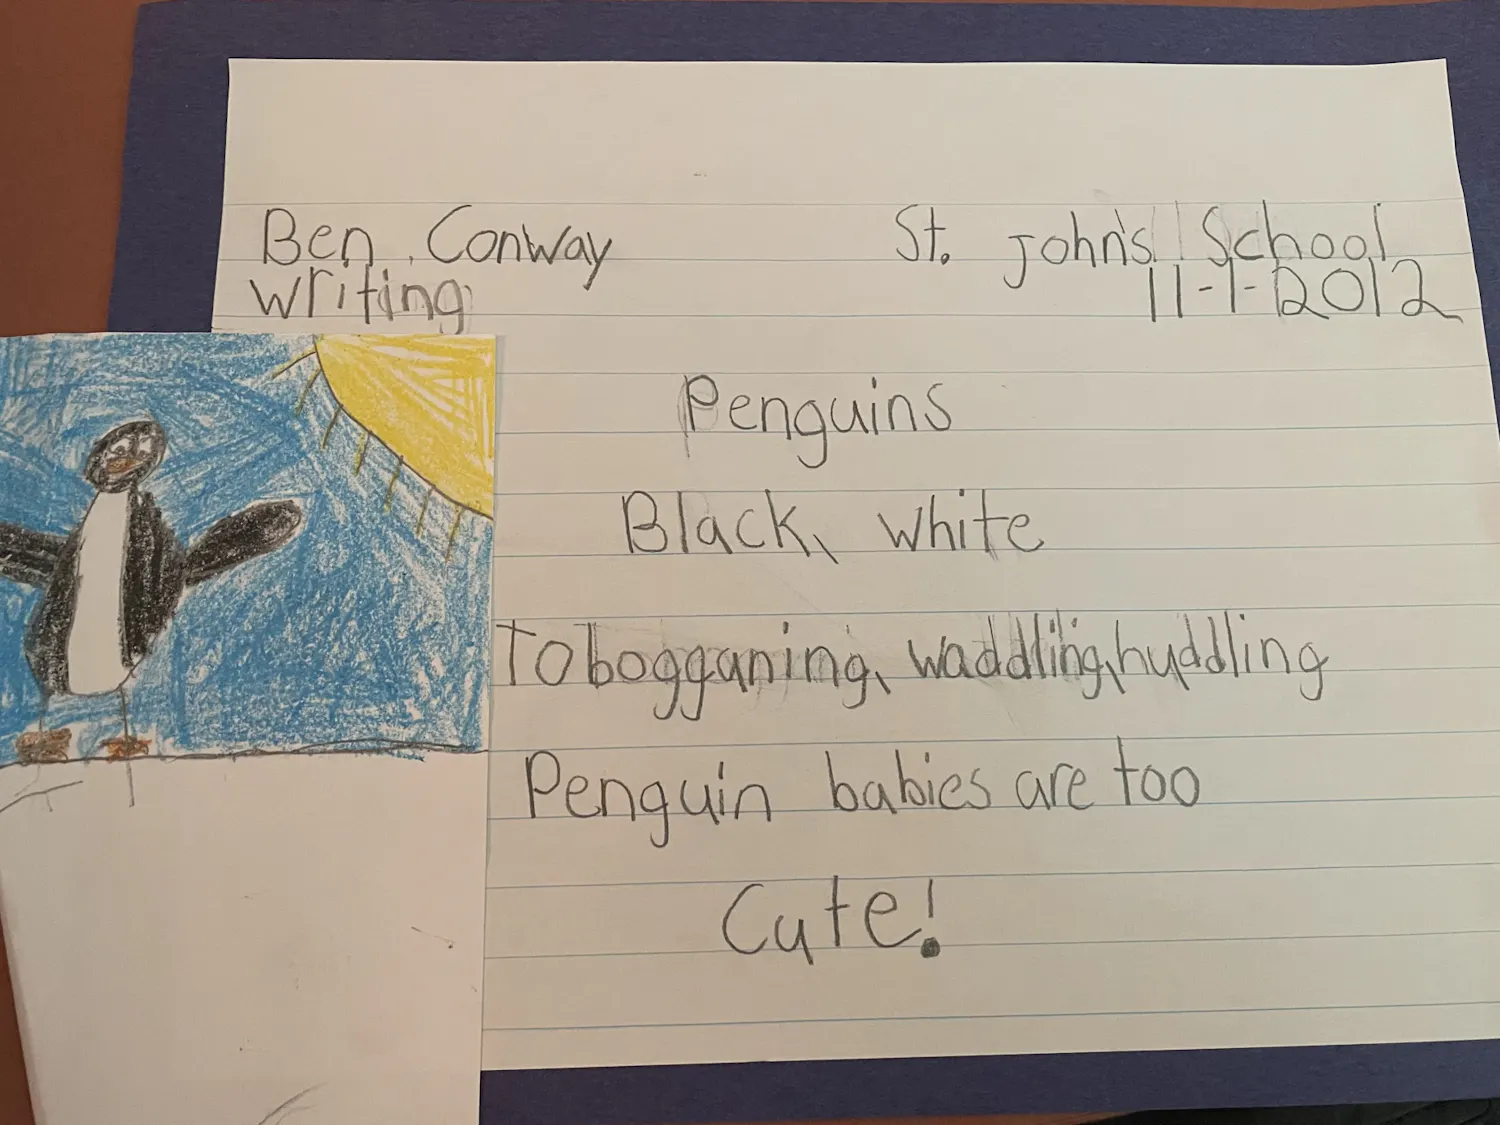 Ben Conway St. John's School
Writing 11-1-2012
Penguins
Black, white
Tobogganing, waddling, huddling
Penguin babies are too
Cute!